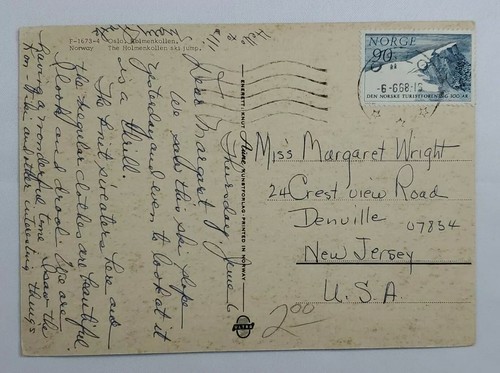 P-1673-4 Oslo. Holmenkollen.
Norway The Holmenkollen ski jump.
Thursday, June 6
Dear Margaret,
We saw this ski slope
yesterday and even to look at it
is a thrill.
The knit sweaters here and
the regular clothes are beautiful
I look and drool. We are
having a wonderful time. Saw the
Kon-Tiki and other interesting things
Hello to
ENERETT: KNUT KUNSTFORLAG PRINTED IN NORWAY
ULTRA
NORGE
90
DEN NORSKE TURISTFORENING 100 ÅR
-6-6.68-18
Miss Margaret Wright
24 Crest view Road
Denville 07834
New Jersey
U.S.A.
2.00